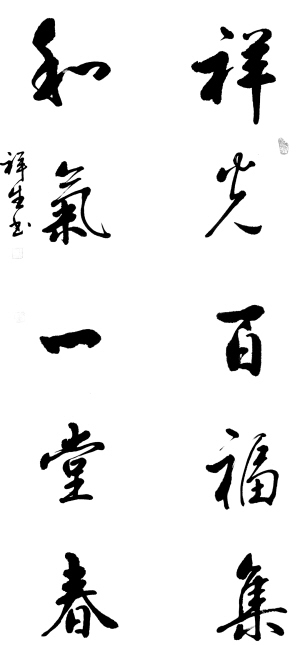 祥光百福集
和氣一堂春
祥生书